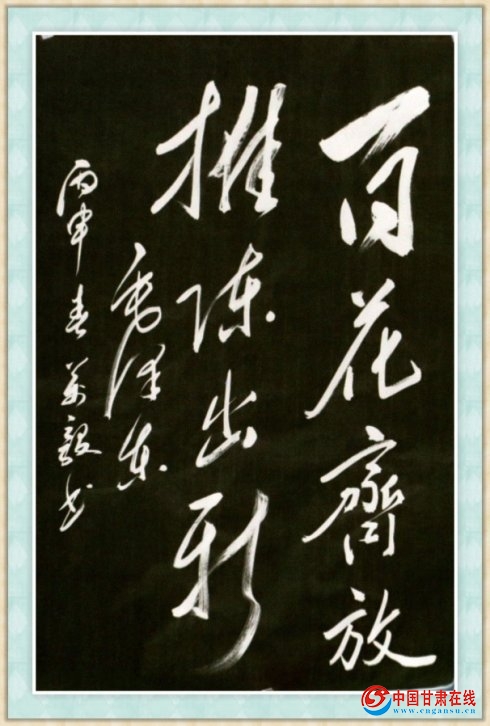 百花齊放
推陈出新
毛泽东
丙申春万毅书
中国甘肃在线
www.cngansu.cn